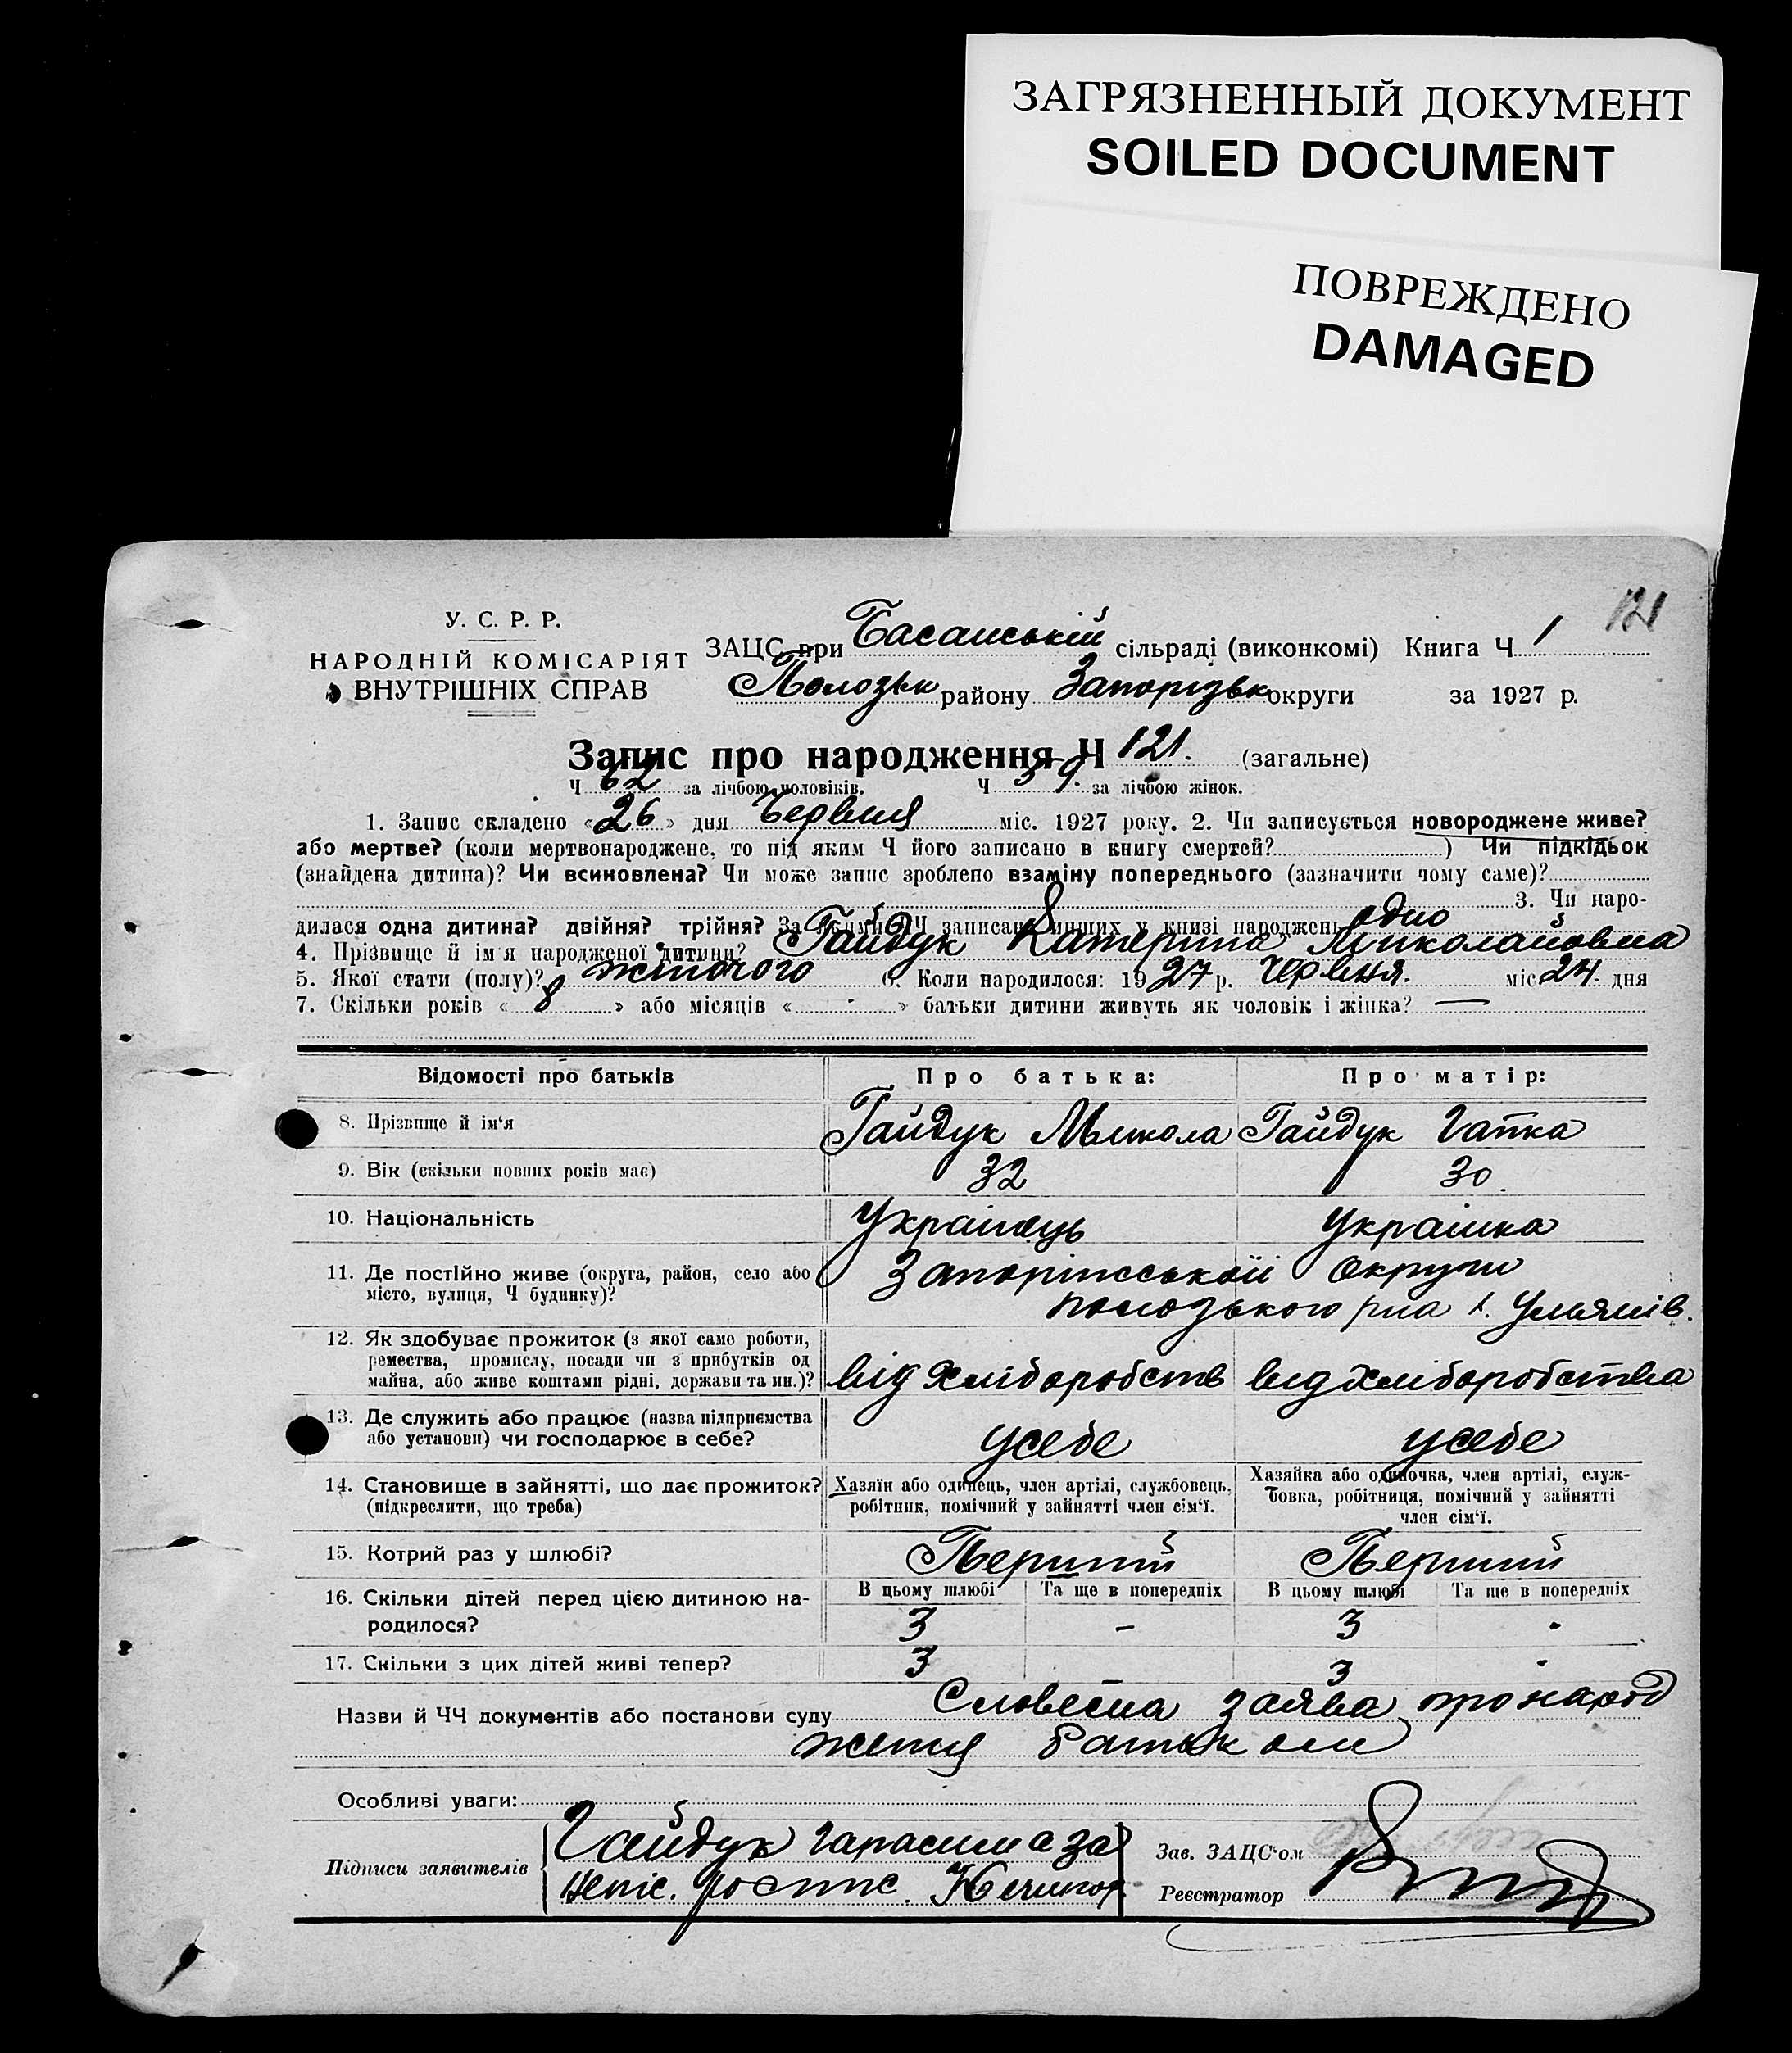 ЗАГРЯЗНЕННЫЙ ДОКУМЕНТ
SOILED DOCUMENT
ПОВРЕЖДЕНО
DAMAGED
121
У. С. Р. Р.
НАРОДНІЙ КОМІСАРІЯТ
ВНУТРІШНІХ СПРАВ
ЗАЦС при Басанській сільраді (виконкомі) Книга Ч 1
Полозьк району Запорізьк округи за 1927 р.
Запис про народження Ч 121. (загальне)
Ч 62 за лічбою чоловіків. Ч 59. за лічбою жінок.
1. Запис складено «26» дня Червня міс. 1927 року. 2. Чи записується новороджене живе?
або мертве? (коли мертвонароджене, то під яким Ч його записано в книгу смертей? ) Чи підкідьок
(знайдена дитина)? Чи всиновлена? Чи може запис зроблено взаміну попереднього (зазначити чому саме)?
3. Чи наро-
дилася одна дитина? двійня? трійня? За якими ЧЧ записано инших у книзі народжень одно
4. Прізвище й ім'я народженої дитини? Гайдук Катерина Миколайовна
5. Якої стати (полу)? жіночого 6. Коли народилося: 1927 р. Червня. міс 24. дня
7. Скільки років «8» або місяців « - » батьки дитини живуть як чоловік і жінка? —
Відомості про батьків Про батька: Про матір:
8. Прізвище й ім'я Гайдук Микола Гайдук Гапка
9. Вік (скільки повних років має) 32 30
10. Національність Українець Українка
11. Де постійно живе (округа, район, село або Запоріжської округи
місто, вулиця, Ч будинку)? полозького р-на х. Ульянів.
12. Як здобуває прожиток (з якої саме роботи,
ремества, промислу, посади чи з прибутків од
майна, або живе коштами рідні, держави та ин.)? від хліборобств від хліборобства
13. Де служить або працює (назва підприємства
або установи) чи господарює в себе? усебе усебе
14. Становище в зайнятті, що дає прожиток?
(підкреслити, що треба)
Хазяїн або одинець, член артілі, службовець,
робітник, помічний у зайнятті член сім'ї.
Хазяйка або одиночка, член артілі, служ-
бовка, робітниця, помічний у зайнятті
член сім'ї.
15. Котрий раз у шлюбі? Перший Перший
16. Скільки дітей перед цією дитиною на-
родилося?
В цьому шлюбі Та ще в попередніх В цьому шлюбі Та ще в попередніх
3 - 3 -
17. Скільки з цих дітей живі тепер? 3 3 -
Назви й ЧЧ документів або постанови суду Словесна заява про народ
женя батьком
Особливі уваги:
Підписи заявителів Гайдук Гарасим а за
непіс. роспис.
Зав. ЗАЦС'ом
Реєстратор